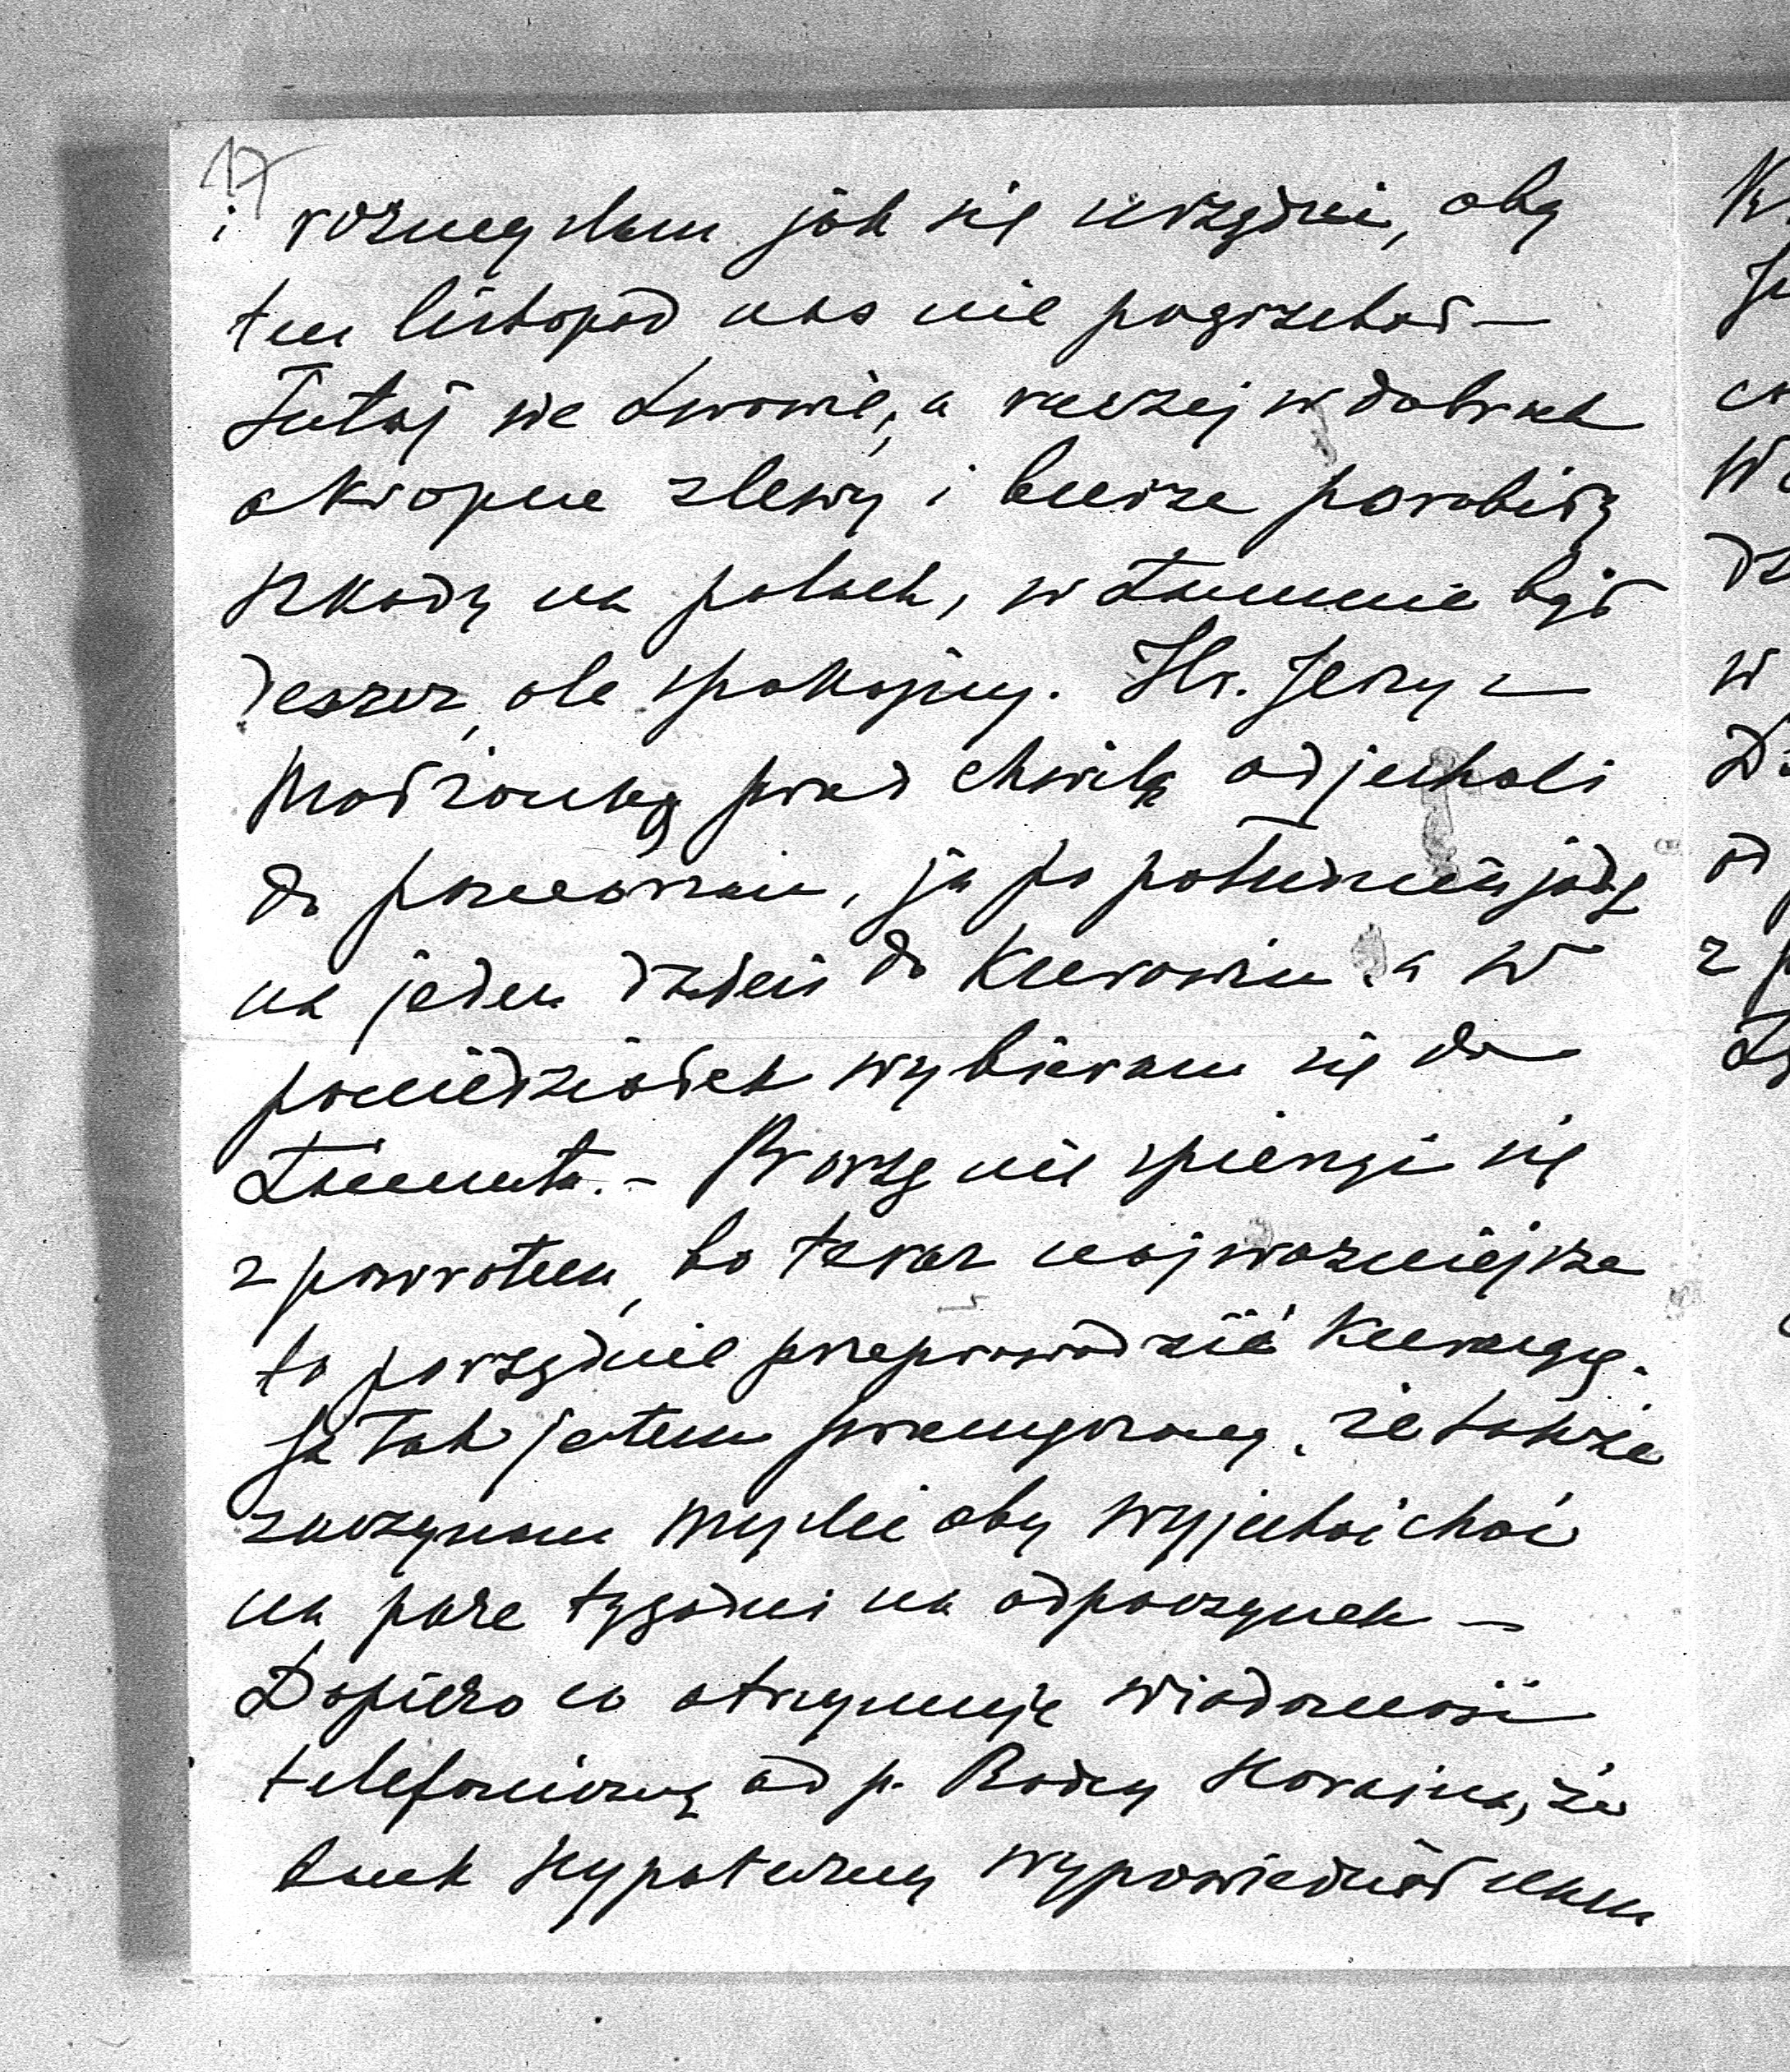 17
i rozmyślam jak się urządzić, aby
ten listopad nas nie pogrzebał —
Tutaj we Lwowie, a raczej w dobrach
okropne zlewy i burze porobiły
szkody na polach, w Łańcucie był
deszcz, ale spokojny. Hr. Jerzy z
Małżonką przed chwilą odjechali
do Pomorzan, ja po południu jadę
na jeden dzień do Kurowic a w
poniedziałek wybieram się do
Łańcuta. - Proszę nie spieszyć się
z powrotem, bo teraz najważniejsze
to porządnie przeprowadzić kurację.
Ja tak jestem przemęczony, że także
zaczynam myśleć aby wyjechać choć
na parę tygodni na odpoczynek —
Dopiero co otrzymuję wiadomość
telefoniczną od p. Radcy że
bank hypoteczny wypowiedział nam